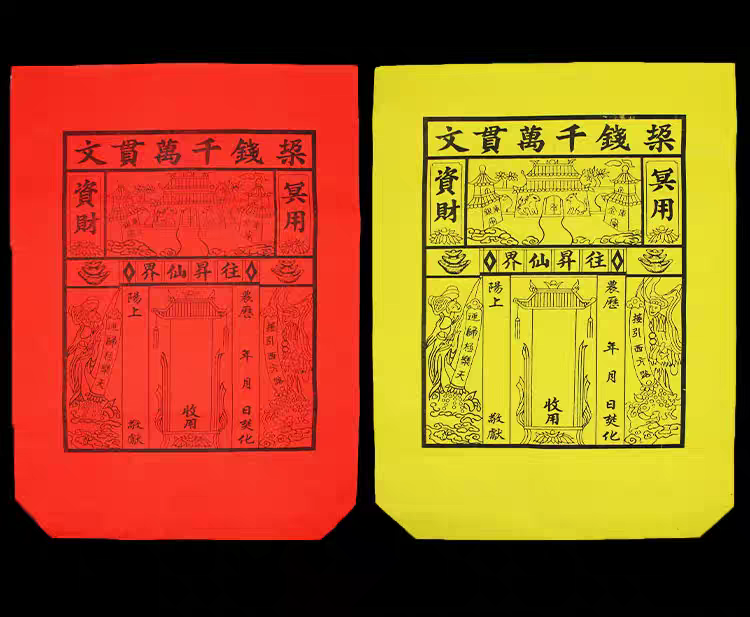 錢千萬貫文
冥用
資財
往昇仙界
接引西方路
農曆 年 月 日焚化
收用
陽上 敬獻
歸極樂天
錢千萬貫文
冥用
資財
往昇仙界
接引西方路
農曆 年 月 日焚化
收用
陽上 敬獻
歸極樂天